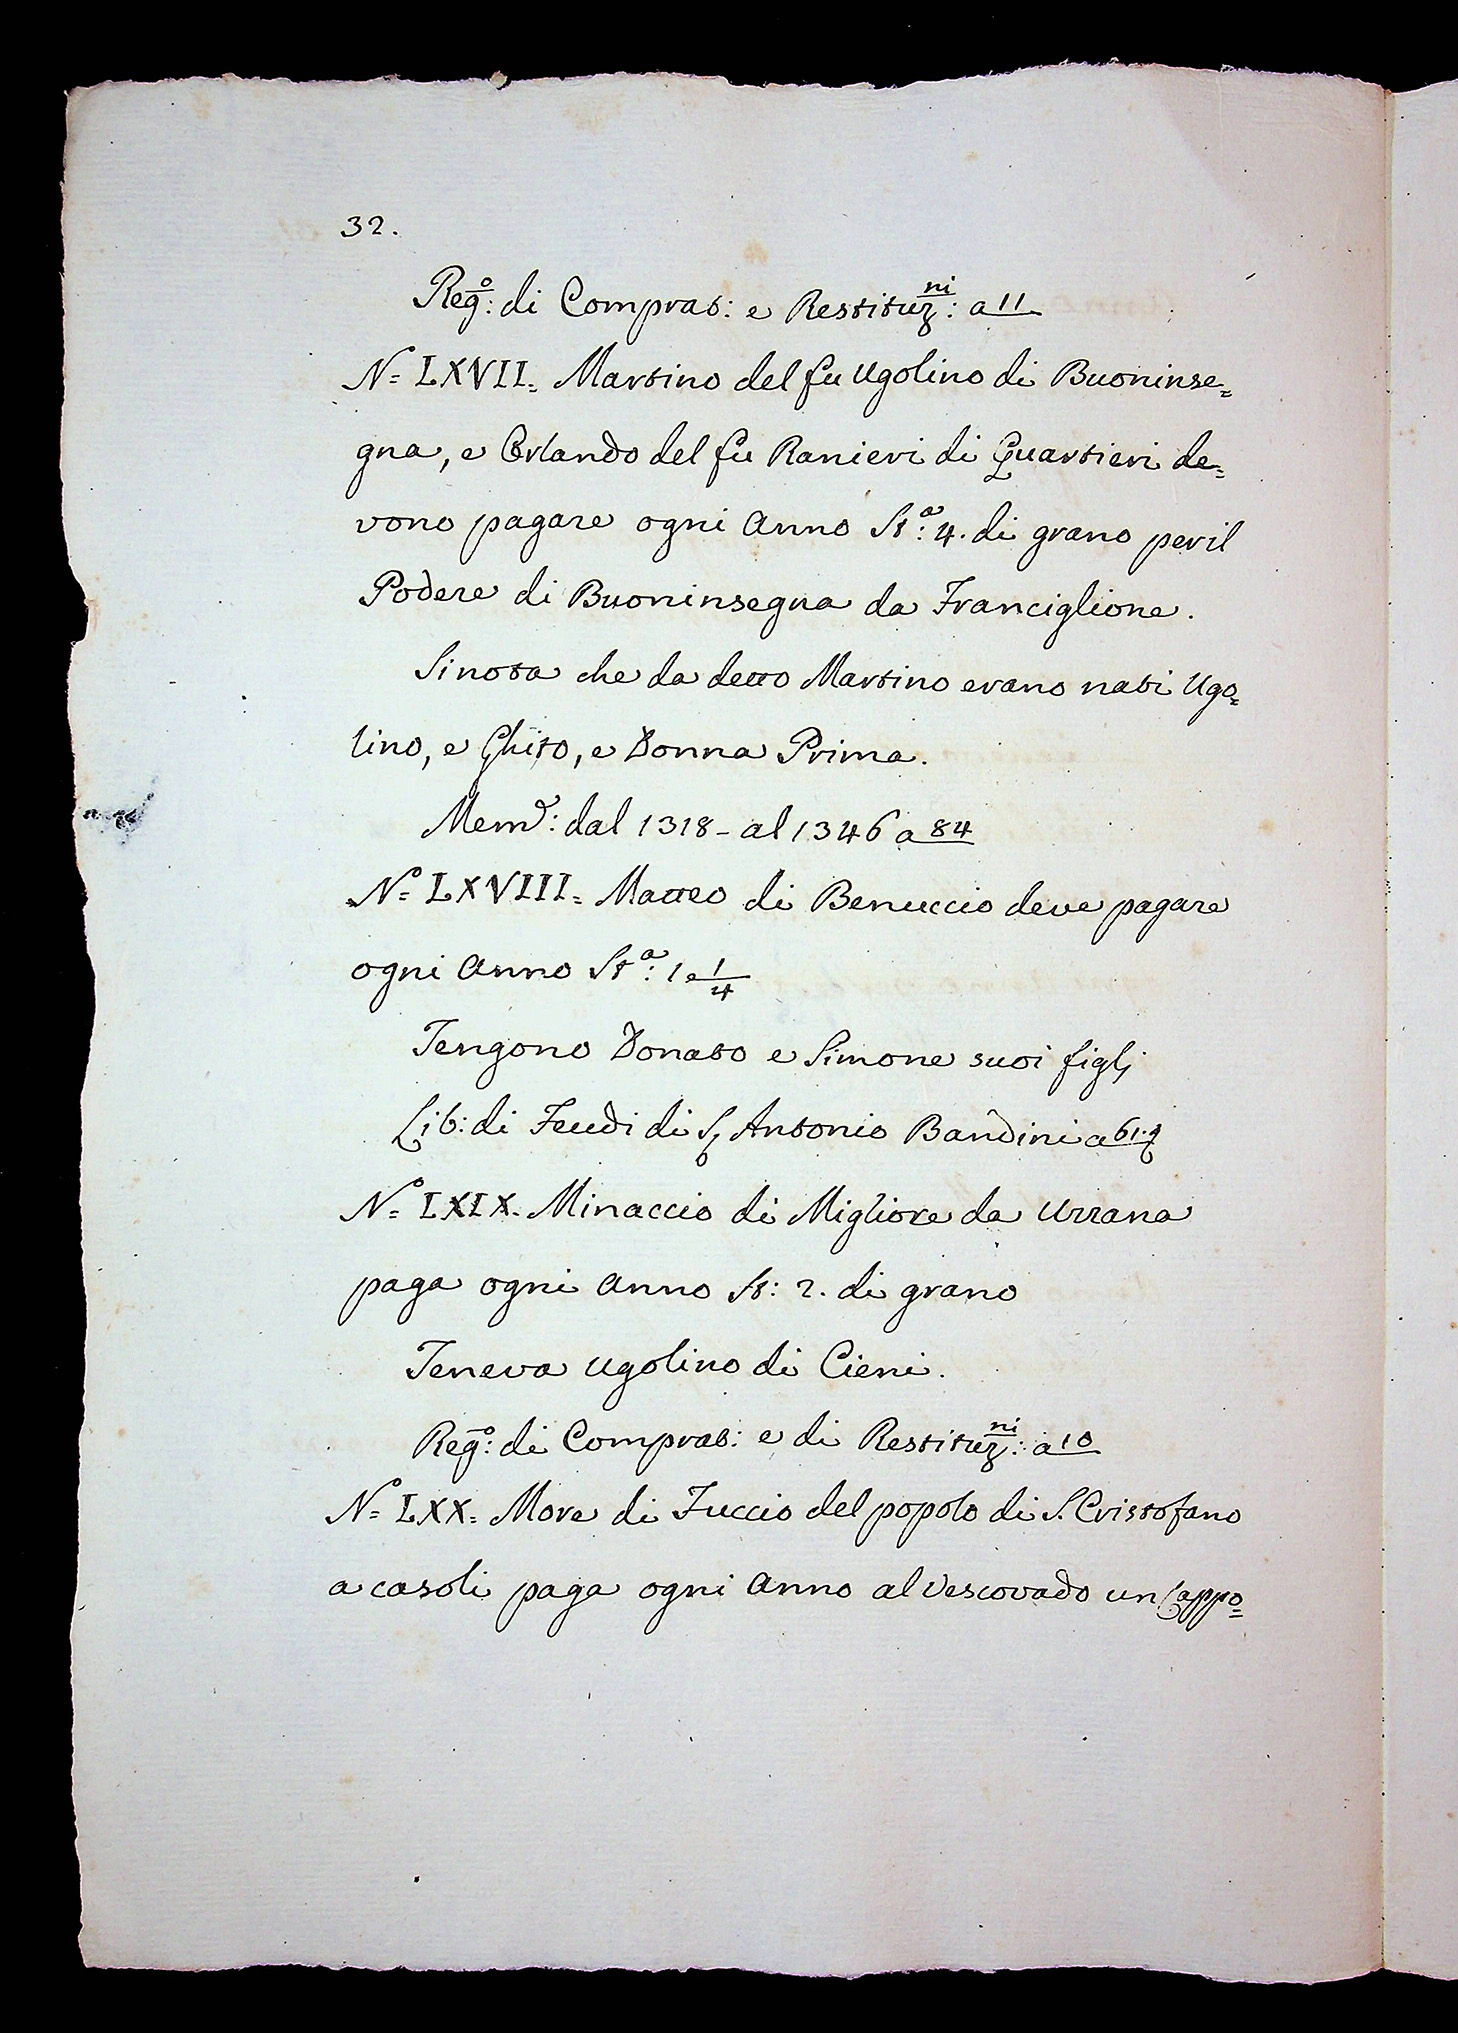 32.
Reg.o: di Comprat: e Restituz.ni: a 11
N.o= LXVII= Martino del fu Ugolino di Buoninse=
gna, e Orlando del fu Ranieri di Guartieri de=
vono pagare ogni Anno St.a: 4. di grano per il
Podere di Buoninsegna da Franciglione.
Sinota che da detto Martino erano nati Ugo=
lino, e Ghito, e Donna Prima.
Mem.e: dal 1318 - al 1346 a 84
N.o= LXVIII= Matteo di Benuccio deve pagare
ogni Anno St.a: 1 e 1/4
Tengono Donato e Simone suoi figlj
Lib: di Feudi di S. Antonio Bandini a 61.
N.o= LXIX. Minaccio di Migliore da Urrana
paga ogni Anno St: 2. di grano
Teneva Ugolino di Cieni.
Reg.o: di Comprat: e di Restituz.ni: a 10
N.o= LXX= More di Fuccio del popolo di S. Cristofano
a casoli paga ogni Anno al Vescovado un Cappo=